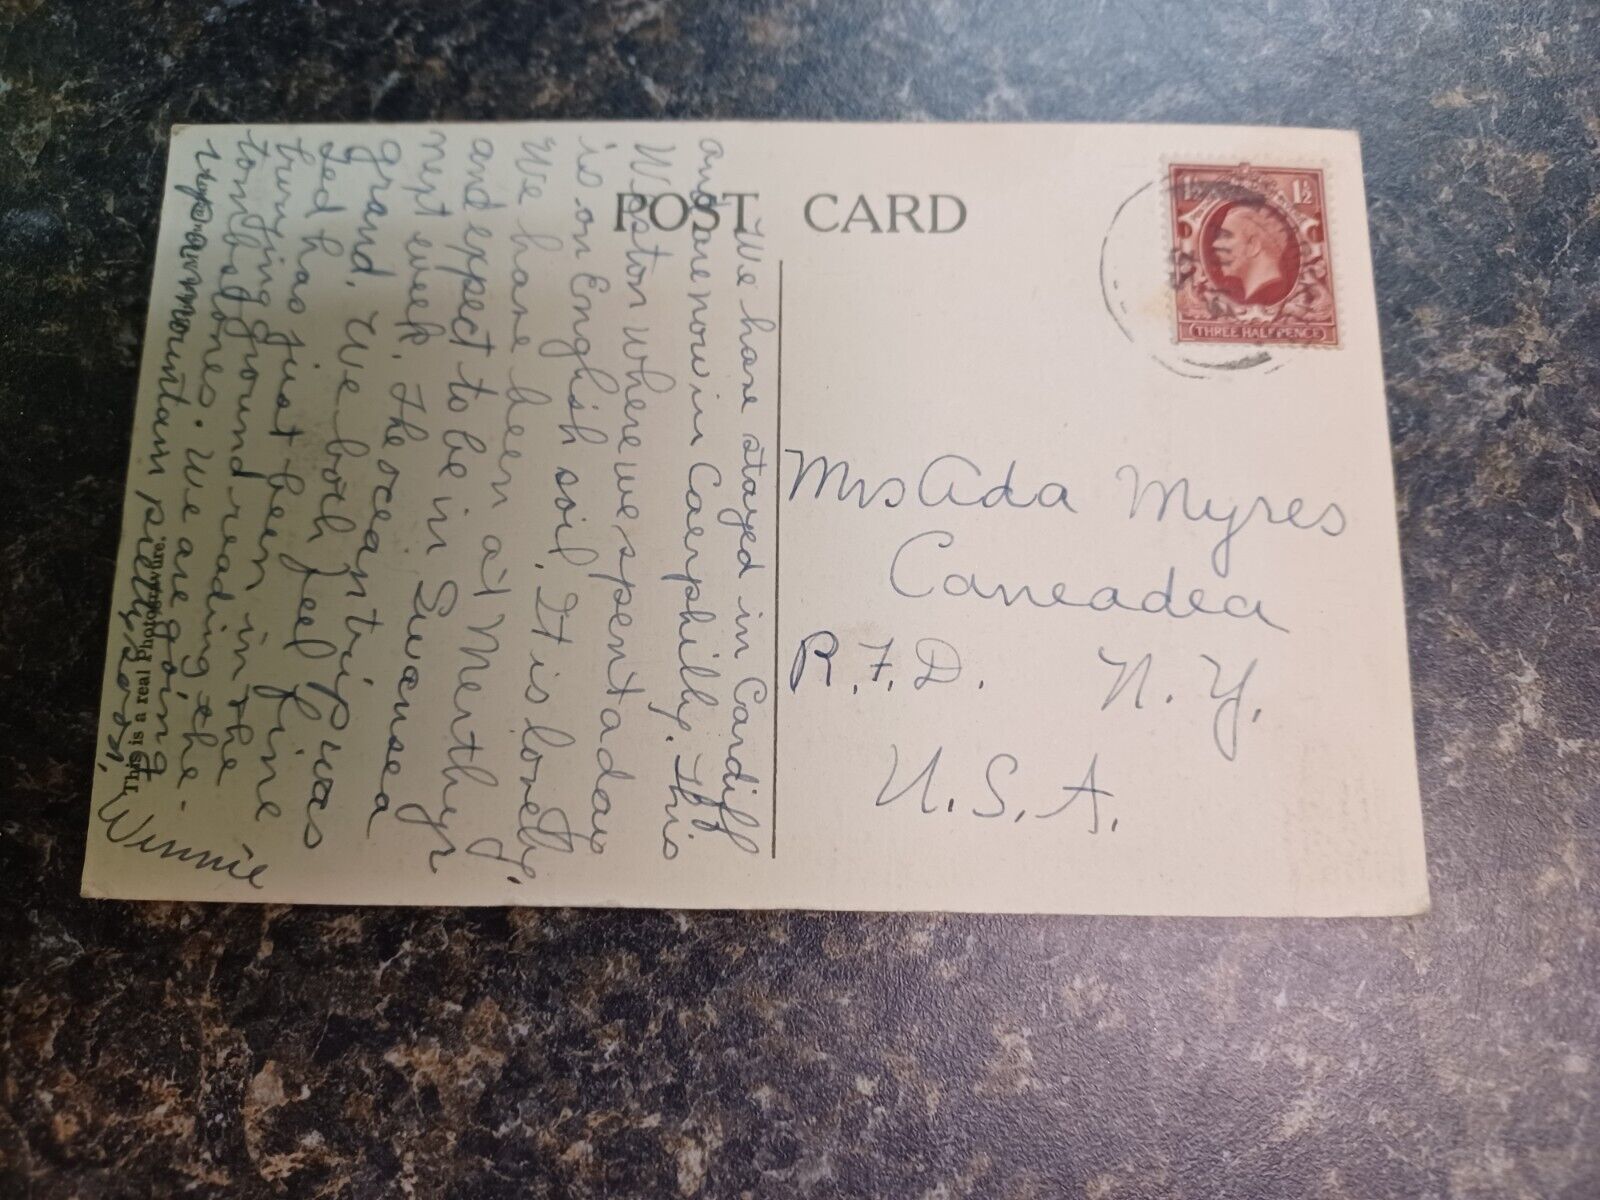 POST CARD
1½
THREE HALFPENCE
We have stayed in Cardiff
and are now in Caerphilly. This
Weston where we spent a day
is on English soil. It is lovely.
We have been at Merthyr
and expect to be in Swansea
next week. The ocean trip was
grand. We both feel fine
Ted has just been in the
burying ground reading the
tombstones. We are going
up a mountain
Winnie
This is a real Photogravure.
Mrs Ada Myres
Caneadea
R.F.D. N.Y.
U.S.A.